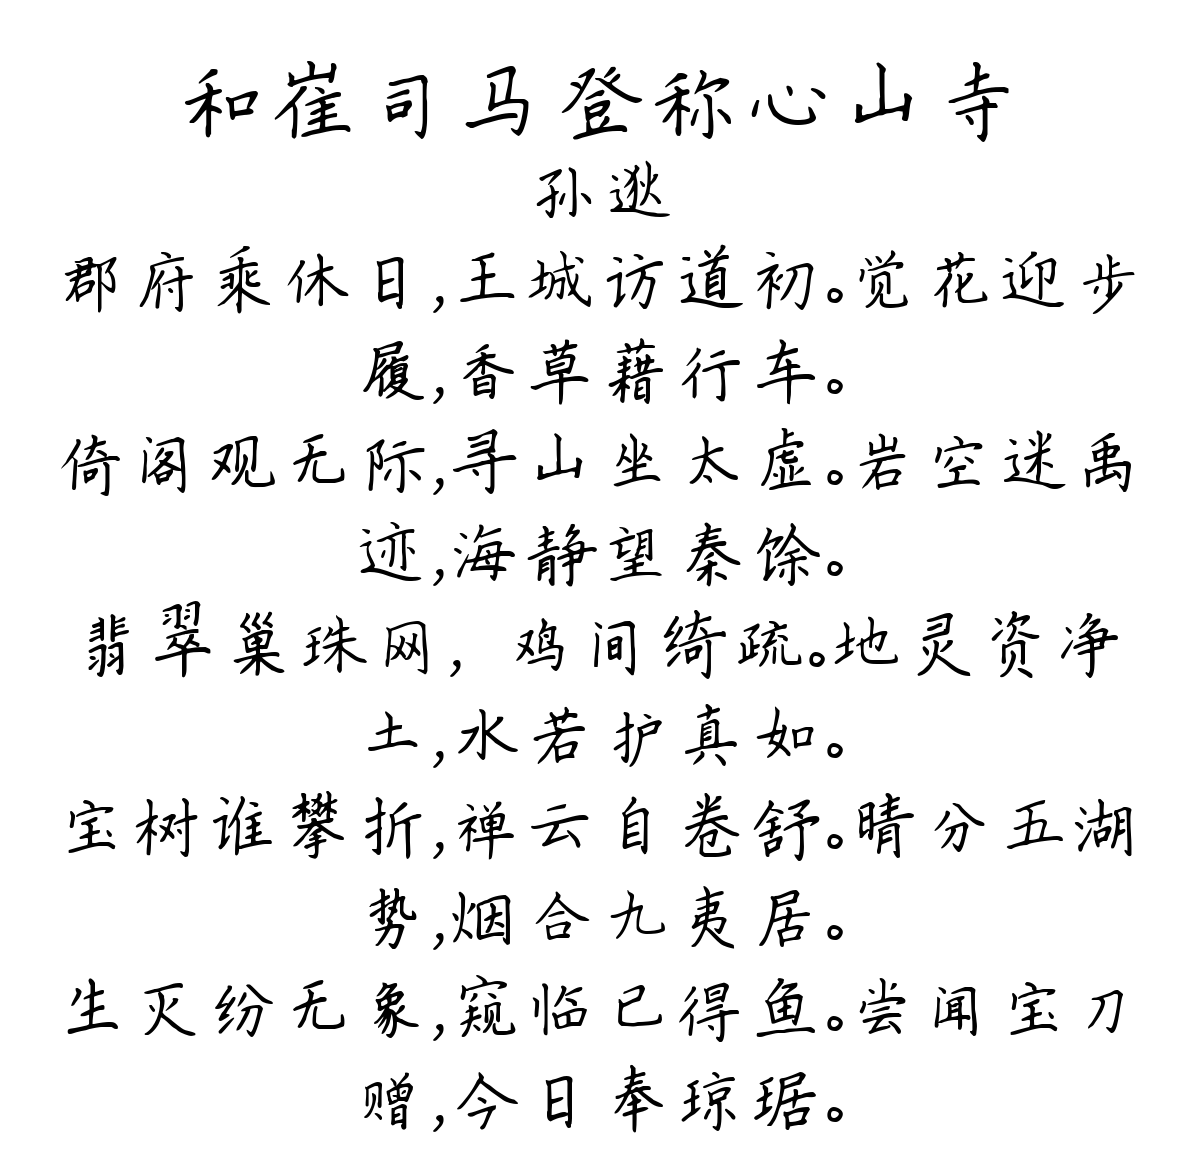 和崔司马登称心山寺
孙逖
郡府乘休日,王城访道初。觉花迎步
履,香草藉行车。
倚阁观无际,寻山坐太虚。岩空迷禹
迹,海静望秦馀。
翡翠巢珠网，鸡间绮疏。地灵资净
土,水若护真如。
宝树谁攀折,禅云自卷舒。晴分五湖
势,烟合九夷居。
生灭纷无象,窥临已得鱼。尝闻宝刀
赠,今日奉琼琚。